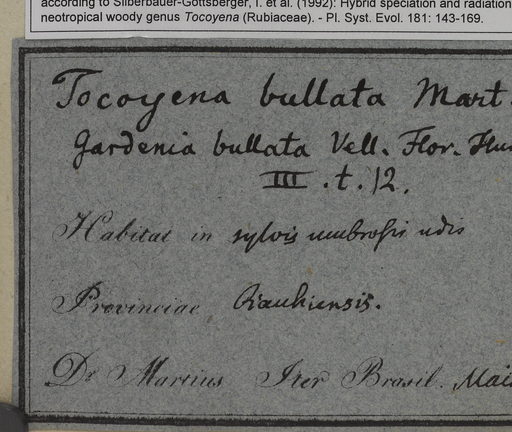 according to Silberbauer-Gottsberger, I. et al. (1992): Hybrid speciation and radiation
neotropical woody genus Tocoyena (Rubiaceae). - Pl. Syst. Evol. 181: 143-169.
Tocoyena bullata Mart.
Gardenia bullata Vell. Flor. Flu
III. t. 12.
Habitat in sylvis umbrosis udis
Provinciae Piauhiensis.
Dr Martius Iter Brasil. Mai